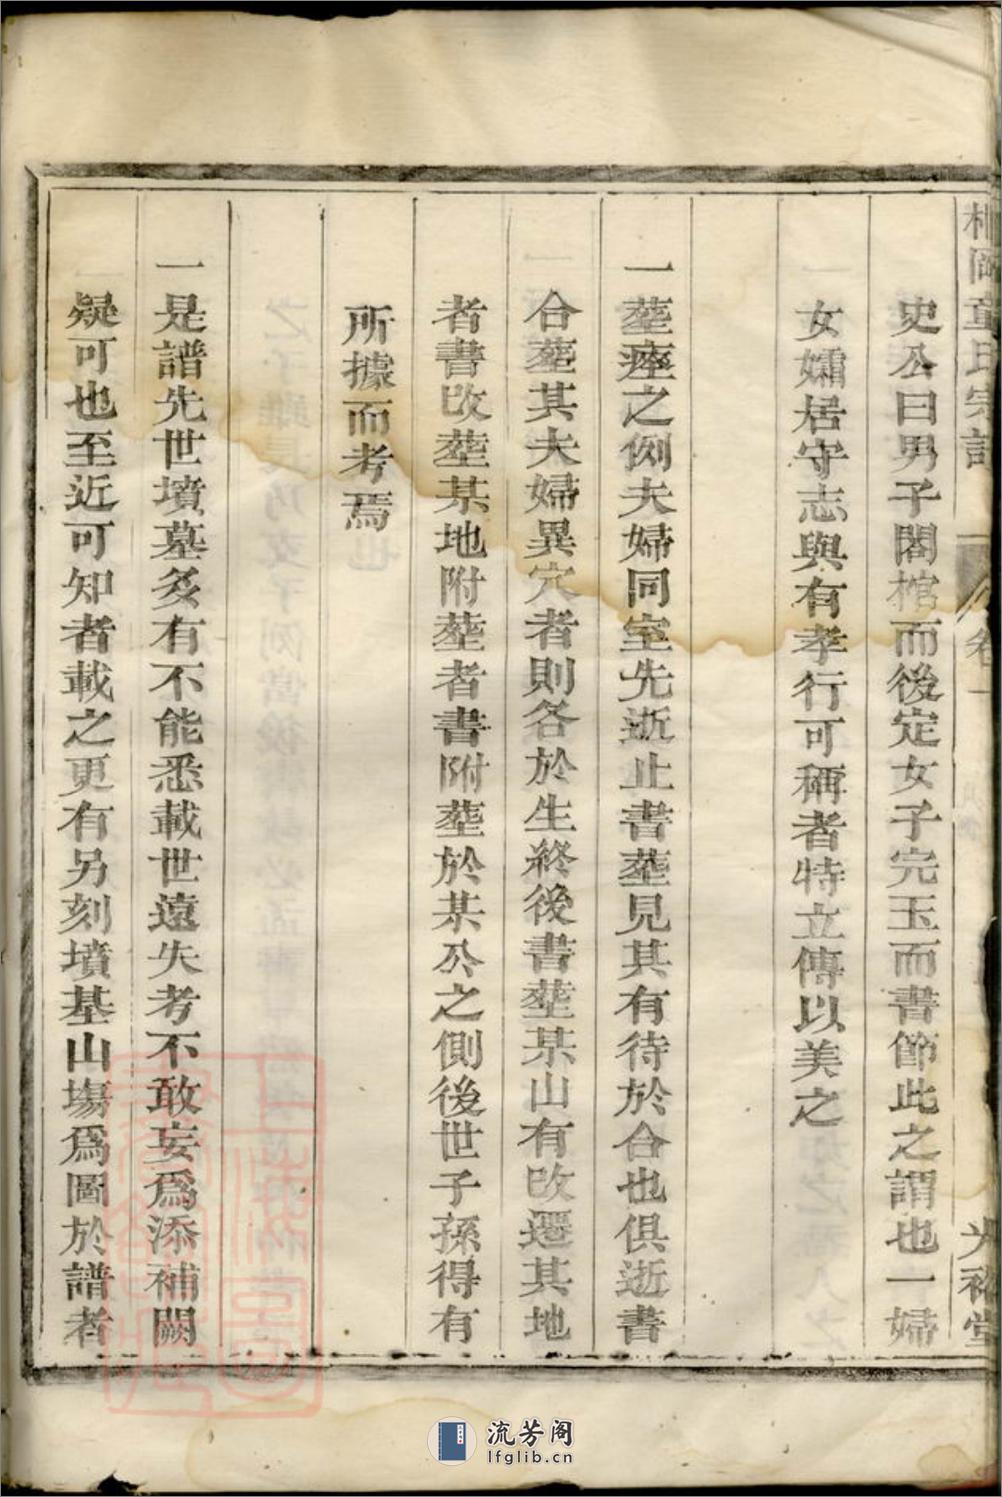 史公曰男子閣棺而後定女子完玉而書節此之謂也一婦
女孀居守志與有孝行可稱者特立傳以美之
一塟瘞之例夫婦同室先逝止書塟見其有待於合也俱逝書
合塟其夫婦異穴者則各於生終後書塟某山有改遷其地
者書改塟某地附塟者書附塟於某公之側後世子孫得有
所據而考焉
一是譜先世墳墓多有不能悉載世遠失考不敢妄爲添補闕
疑可也至近可知者載之更有另刻墳基山塲爲圖於譜者
童氏宗譜
卷一
光裕堂
流芳阁
lfglib.cn